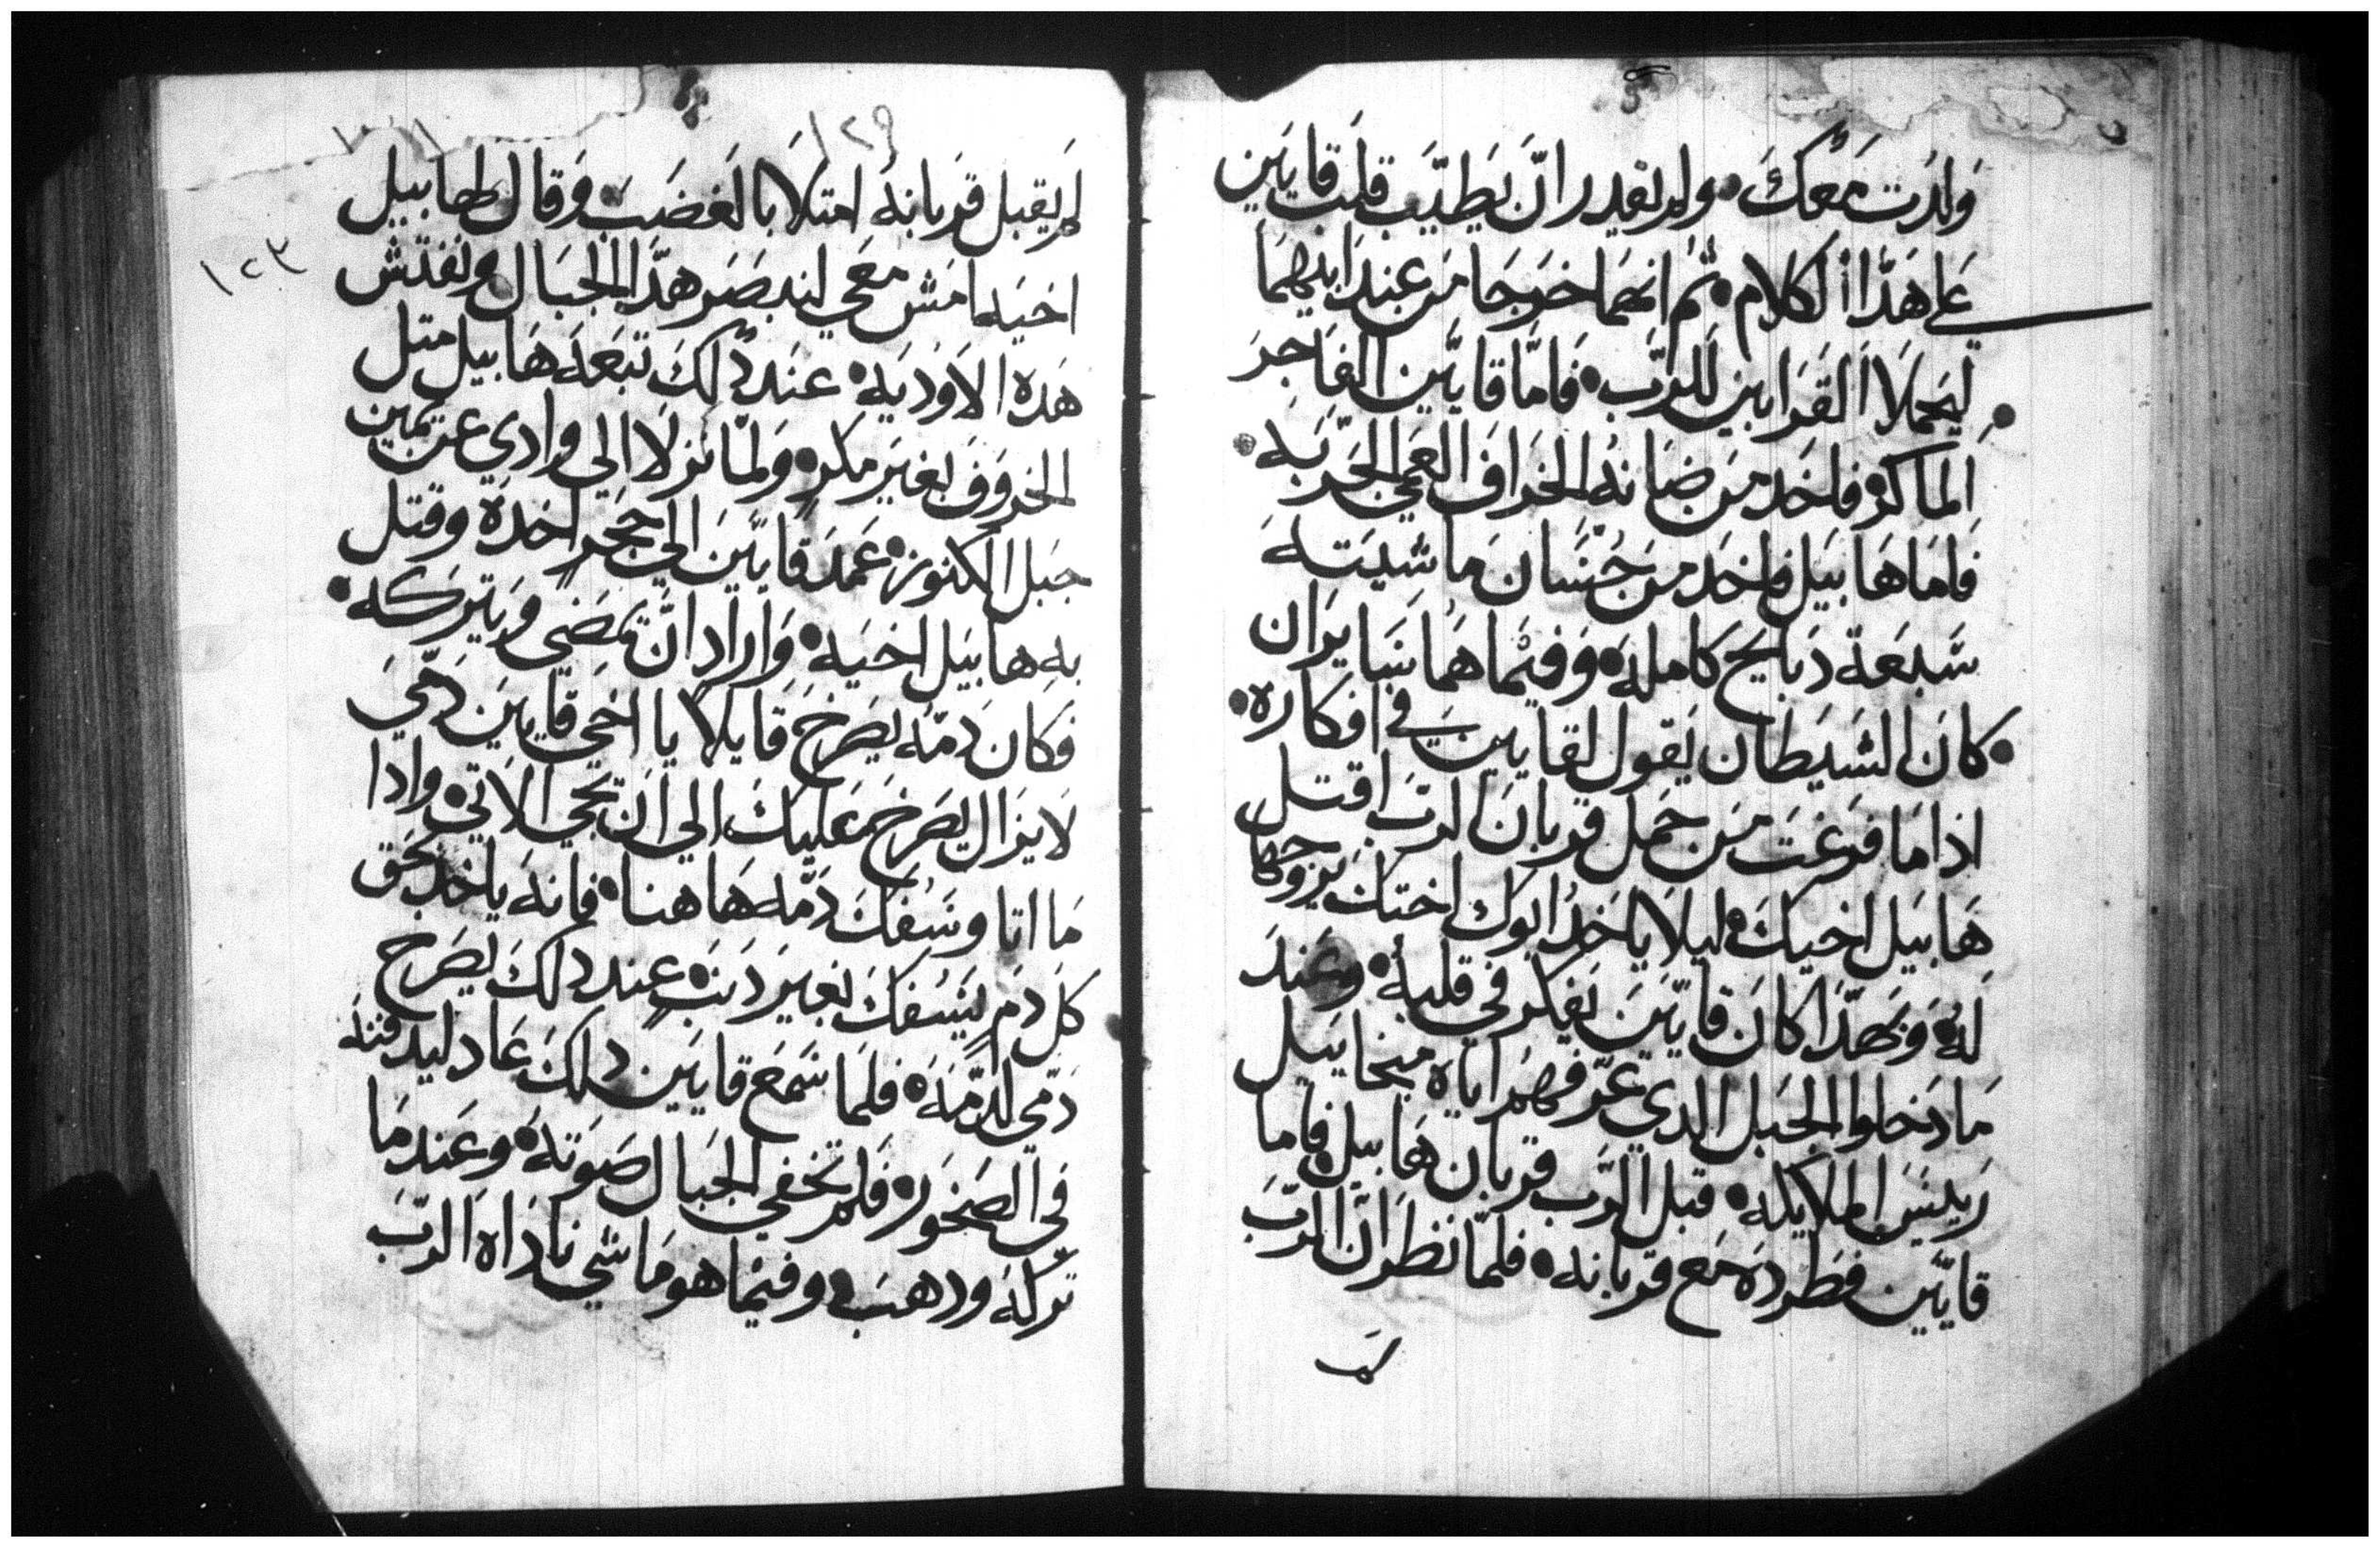 ولدت معك • ولم يقدر ان يطيب قلب قايين
علي هدا الكلام • ثم انهما خرجا من عند ابيهما
ليحملا القرابين للرب • فاما قايين الفاجر
الماكر • فاخد من ضانه الخراف العمي الجربه •
فاما هابيل فاخد من حسان ماشيته
سبعة دبايح كامله • وفيما هما سايران
• كان الشيطان يقول لقايين في افكاره •
اذا ما فرغت من حمل قربان الرب اقتل
هابيل اخيك • ليلا ياخد ابوك اختك يزوجها
له • وبهدا كان قايين يفكر في قلبه • وعند
ما دخلوا الجبل الدي عرفهم اياه ميخاييل
رييس الملايكه • قبل الرب قربان هابيل • فاما
قايين فطرده مع قربانه • فلما نظر ان الرب
لم
١٢٩
لم يقبل قربانه امتلا بالغضب • وقال لهابيل
١٢٣
اخيه امش معي لنبصر هدا الجبال ونفتش
هده الاوديه • عند دلك تبعه هابيل متل
الخروف بغير مكر • ولما نزلا الي وادي عن يمين
جبل الكنوز • عمد قايين الي حجر اخده وقتل
به هابيل اخيه • واراد ان يمضي ويتركه •
فكان دمه يصرخ قايلا يا اخي قايين دمي
لا يزال يصرخ عليك الي ان يجي الاتي • وادا
ما اتا وسفك دمه هاهنا • فانه ياخد بحق
كل دم يسفك بغير دنب • عند دلك يصرخ
دمي لدمه • فلما سمع قايين دلك عاد ليدفنه
في الصخور • فلم تخفي الجبال صوته • وعند ما
تركه ودهب • وفيما هو ماشي ناداه الرب